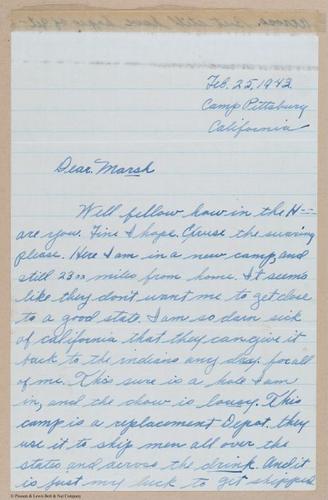 Feb. 25, 1943
Camp Pittsburg
California
Dear Marsh
Well fellow how in the H--
are you. Fine I hope. Excuse the swearing
please. Here I am in a new camp, and
still 2300 miles from home. It seems
like they don't want me to get close
to a good state. I am so darn sick
of california that they can give it
back to the indians any day, for all
of me. This sure is a hole I am
in, and the chow is lousy. This
camp is a replacement Depot. they
use it to ship men all over the
states and across the drink. And it
is just my luck to get shipped
© Pinsom & Lewis Bolt & Nut Company